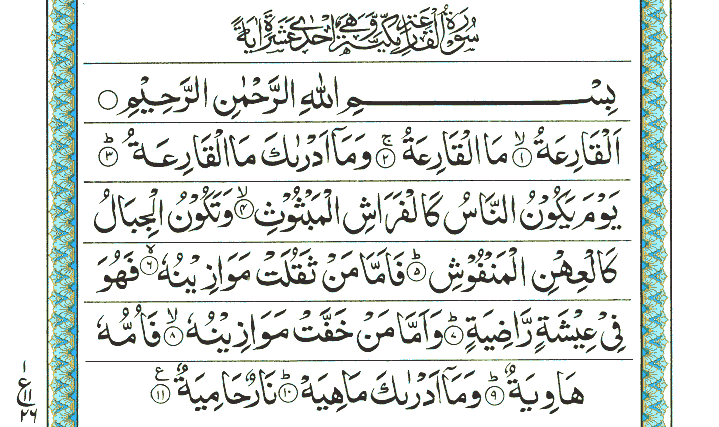 سُوْرَةُ الْقَارِعَةِ مَكِّيَّةٌ وَّهِيَ اِحْدٰى عَشْرَةَ اٰيَةً
بِسْمِ اللّٰهِ الرَّحْمٰنِ الرَّحِيْمِ ○
اَلْقَارِعَةُ ۙ﴿۱﴾ مَا الْقَارِعَةُ ۚ﴿۲﴾ وَمَاۤ اَدْرٰىكَ مَا الْقَارِعَةُ ؕ﴿۳﴾
يَوْمَ يَكُوْنُ النَّاسُ كَالْفَرَاشِ الْمَبْثُوْثِ ۙ﴿۴﴾ وَتَكُوْنُ الْجِبَالُ
كَالْعِهْنِ الْمَنْفُوْشِ ؕ﴿۵﴾ فَاَمَّا مَنْ ثَقُلَتْ مَوَازِيْنُهٗ ۙ﴿۶﴾ فَهُوَ
فِيْ عِيْشَةٍ رَّاضِيَةٍ ؕ﴿۷﴾ وَاَمَّا مَنْ خَفَّتْ مَوَازِيْنُهٗ ۙ﴿۸﴾ فَاُمُّهٗ
هَاوِيَةٌ ؕ﴿۹﴾ وَمَاۤ اَدْرٰىكَ مَاهِيَهْ ؕ﴿۱۰﴾ نَارٌ حَامِيَةٌ ﴿۱۱﴾ ع
۱
ع ۱۱
۲۶